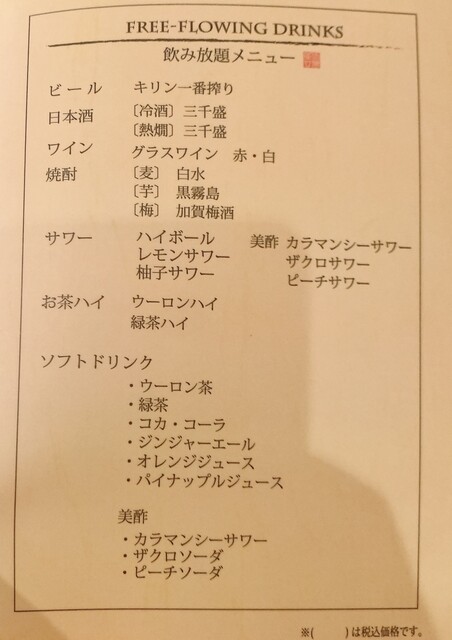 FREE-FLOWING DRINKS
飲み放題メニュー
ビール キリン一番搾り
日本酒 〔冷酒〕三千盛
〔熱燗〕三千盛
ワイン グラスワイン 赤・白
焼酎 〔麦〕 白水
〔芋〕 黒霧島
〔梅〕 加賀梅酒
サワー ハイボール 美酢 カラマンシーサワー
レモンサワー ザクロサワー
柚子サワー ピーチサワー
お茶ハイ ウーロンハイ
緑茶ハイ
ソフトドリンク
・ウーロン茶
・緑茶
・コカ・コーラ
・ジンジャーエール
・オレンジジュース
・パイナップルジュース
美酢
・カラマンシーサワー
・ザクロソーダ
・ピーチソーダ
※( )は税込価格です。